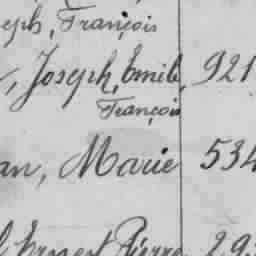 eph, François
, Joseph, Emile, 921
François
an, Marie 534
Ernest Pierre 29